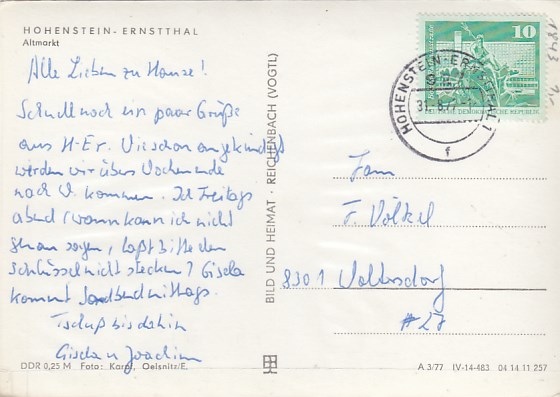 HOHENSTEIN-ERNSTTHAL
Altmarkt
Alle Lieben zu Hause!
Schnell noch ein paar Grüße
aus H-Er. Wie schon angekündigt
werden wir übers Wochenende
nach V. kommen. Ich Freitags
abend (wann kann ich nicht
genau sagen, laßt bitte den
Schlüssel nicht stecken) Gisela
kommt Sonnabend mittags.
Tschüß bis dahin
Gisela u Joachim
DDR 0,25 M Foto: Karpf, Oelsnitz/E.
BILD UND HEIMAT · REICHENBACH (VOGTL)
10
HOHENSTEIN-ERNSTTHAL 1
31.-8.
f
Fam
F. Völkel
8301 Voltersdorf
#27
A 3/77 IV-14-483 04 14 11 257